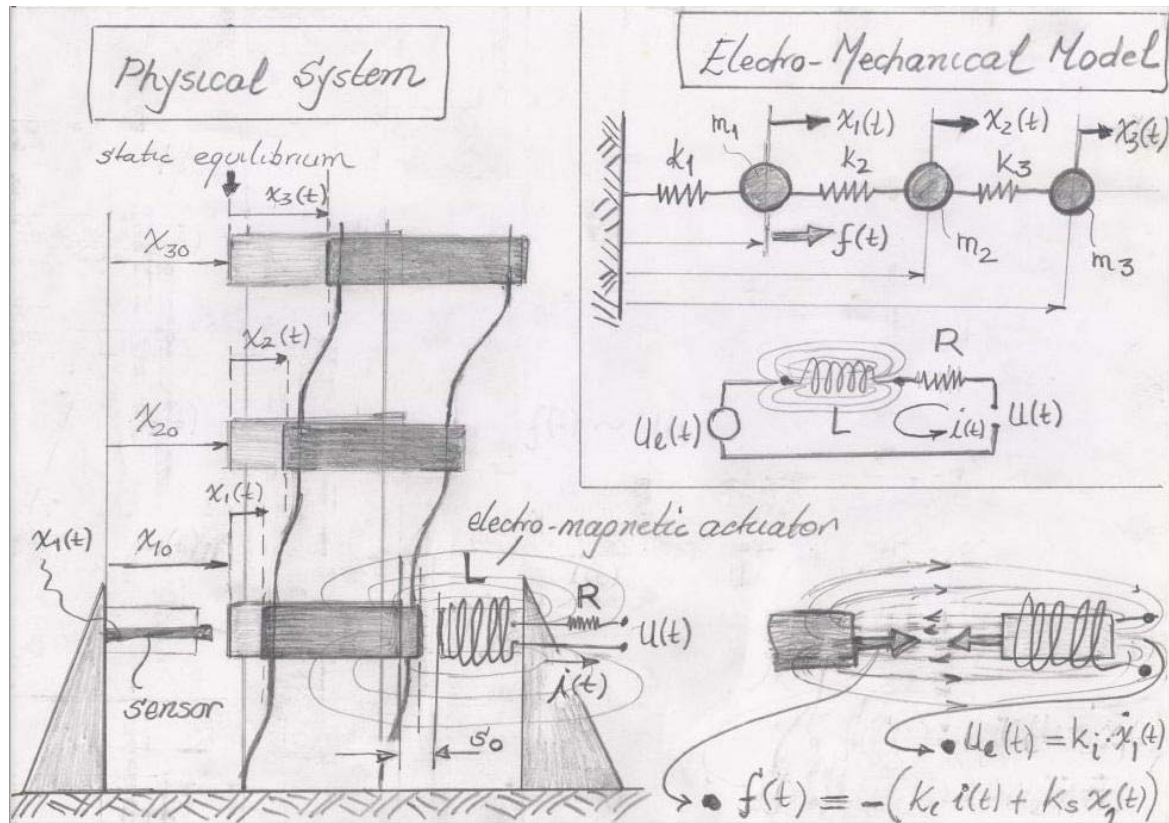 Physical System
static equilibrium
x3(t)
x30
x2(t)
x20
x1(t)
x1(t)
x10
sensor
electro-magnetic actuator
L
R
u(t)
i(t)
s0
Electro-Mechanical Model
m1
x1(t)
x2(t)
x3(t)
k1
k2
k3
f(t)
m2
m3
R
ue(t)
L
i(t)
u(t)
• ue(t) = ki · ẋ1(t)
• f(t) = -(Ki i(t) + Ks x1(t))